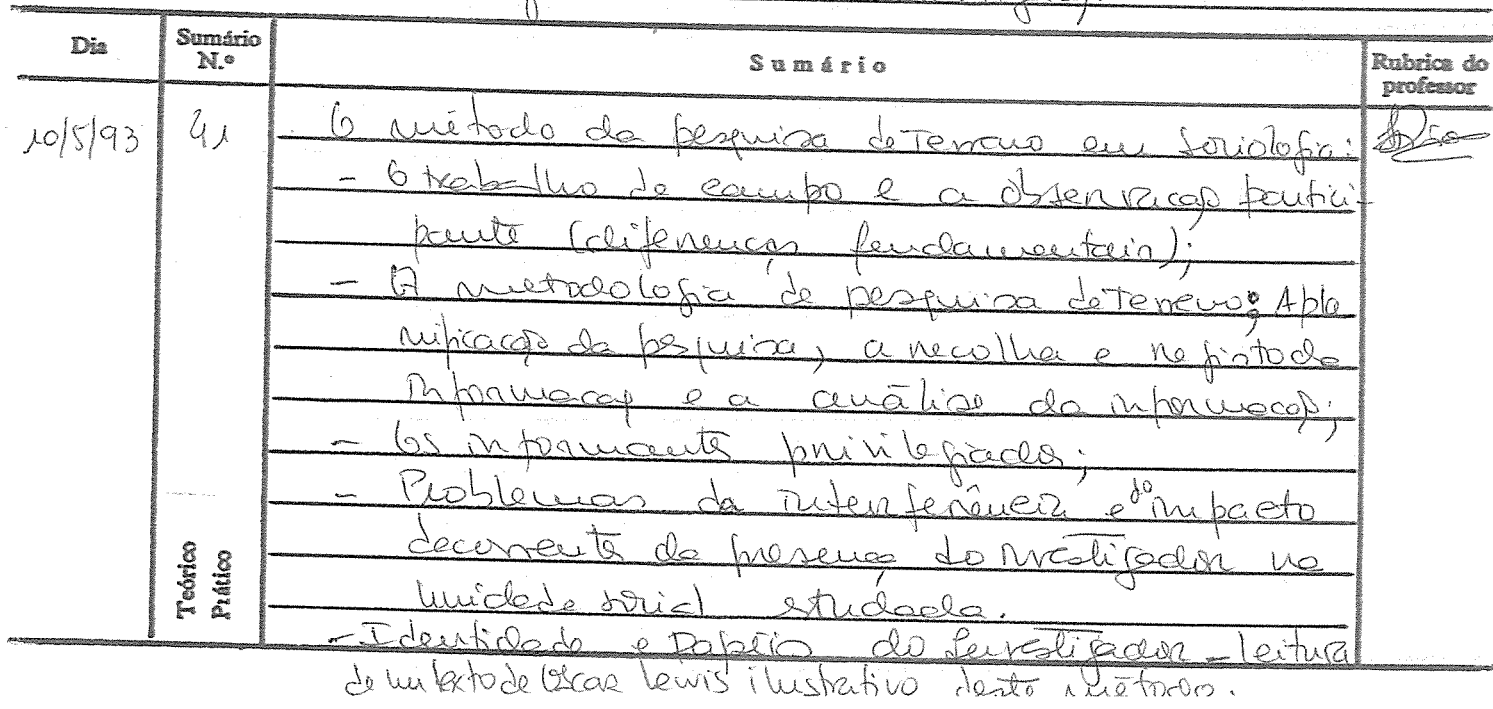 Dia
Sumário N.º
Sumário
Rubrica do professor
10/5/93
41
O método da pesquisa de Terreno em Sociologia:
- O trabalho de campo e a observação partici-
pante (diferenças fundamentais);
- A metodologia de pesquisa de Terreno: A pla
nificação da pesquisa, a recolha e registo da
informação e a análise da informação;
- Os informantes privilegiados;
- Problemas da interferência e do impacto
decorrentes da presença do investigador na
unidade social estudada.
- Identidade e Papéis do Investigador - leitura
de um texto de Oscar Lewis ilustrativo deste método.
Teórico
Prático